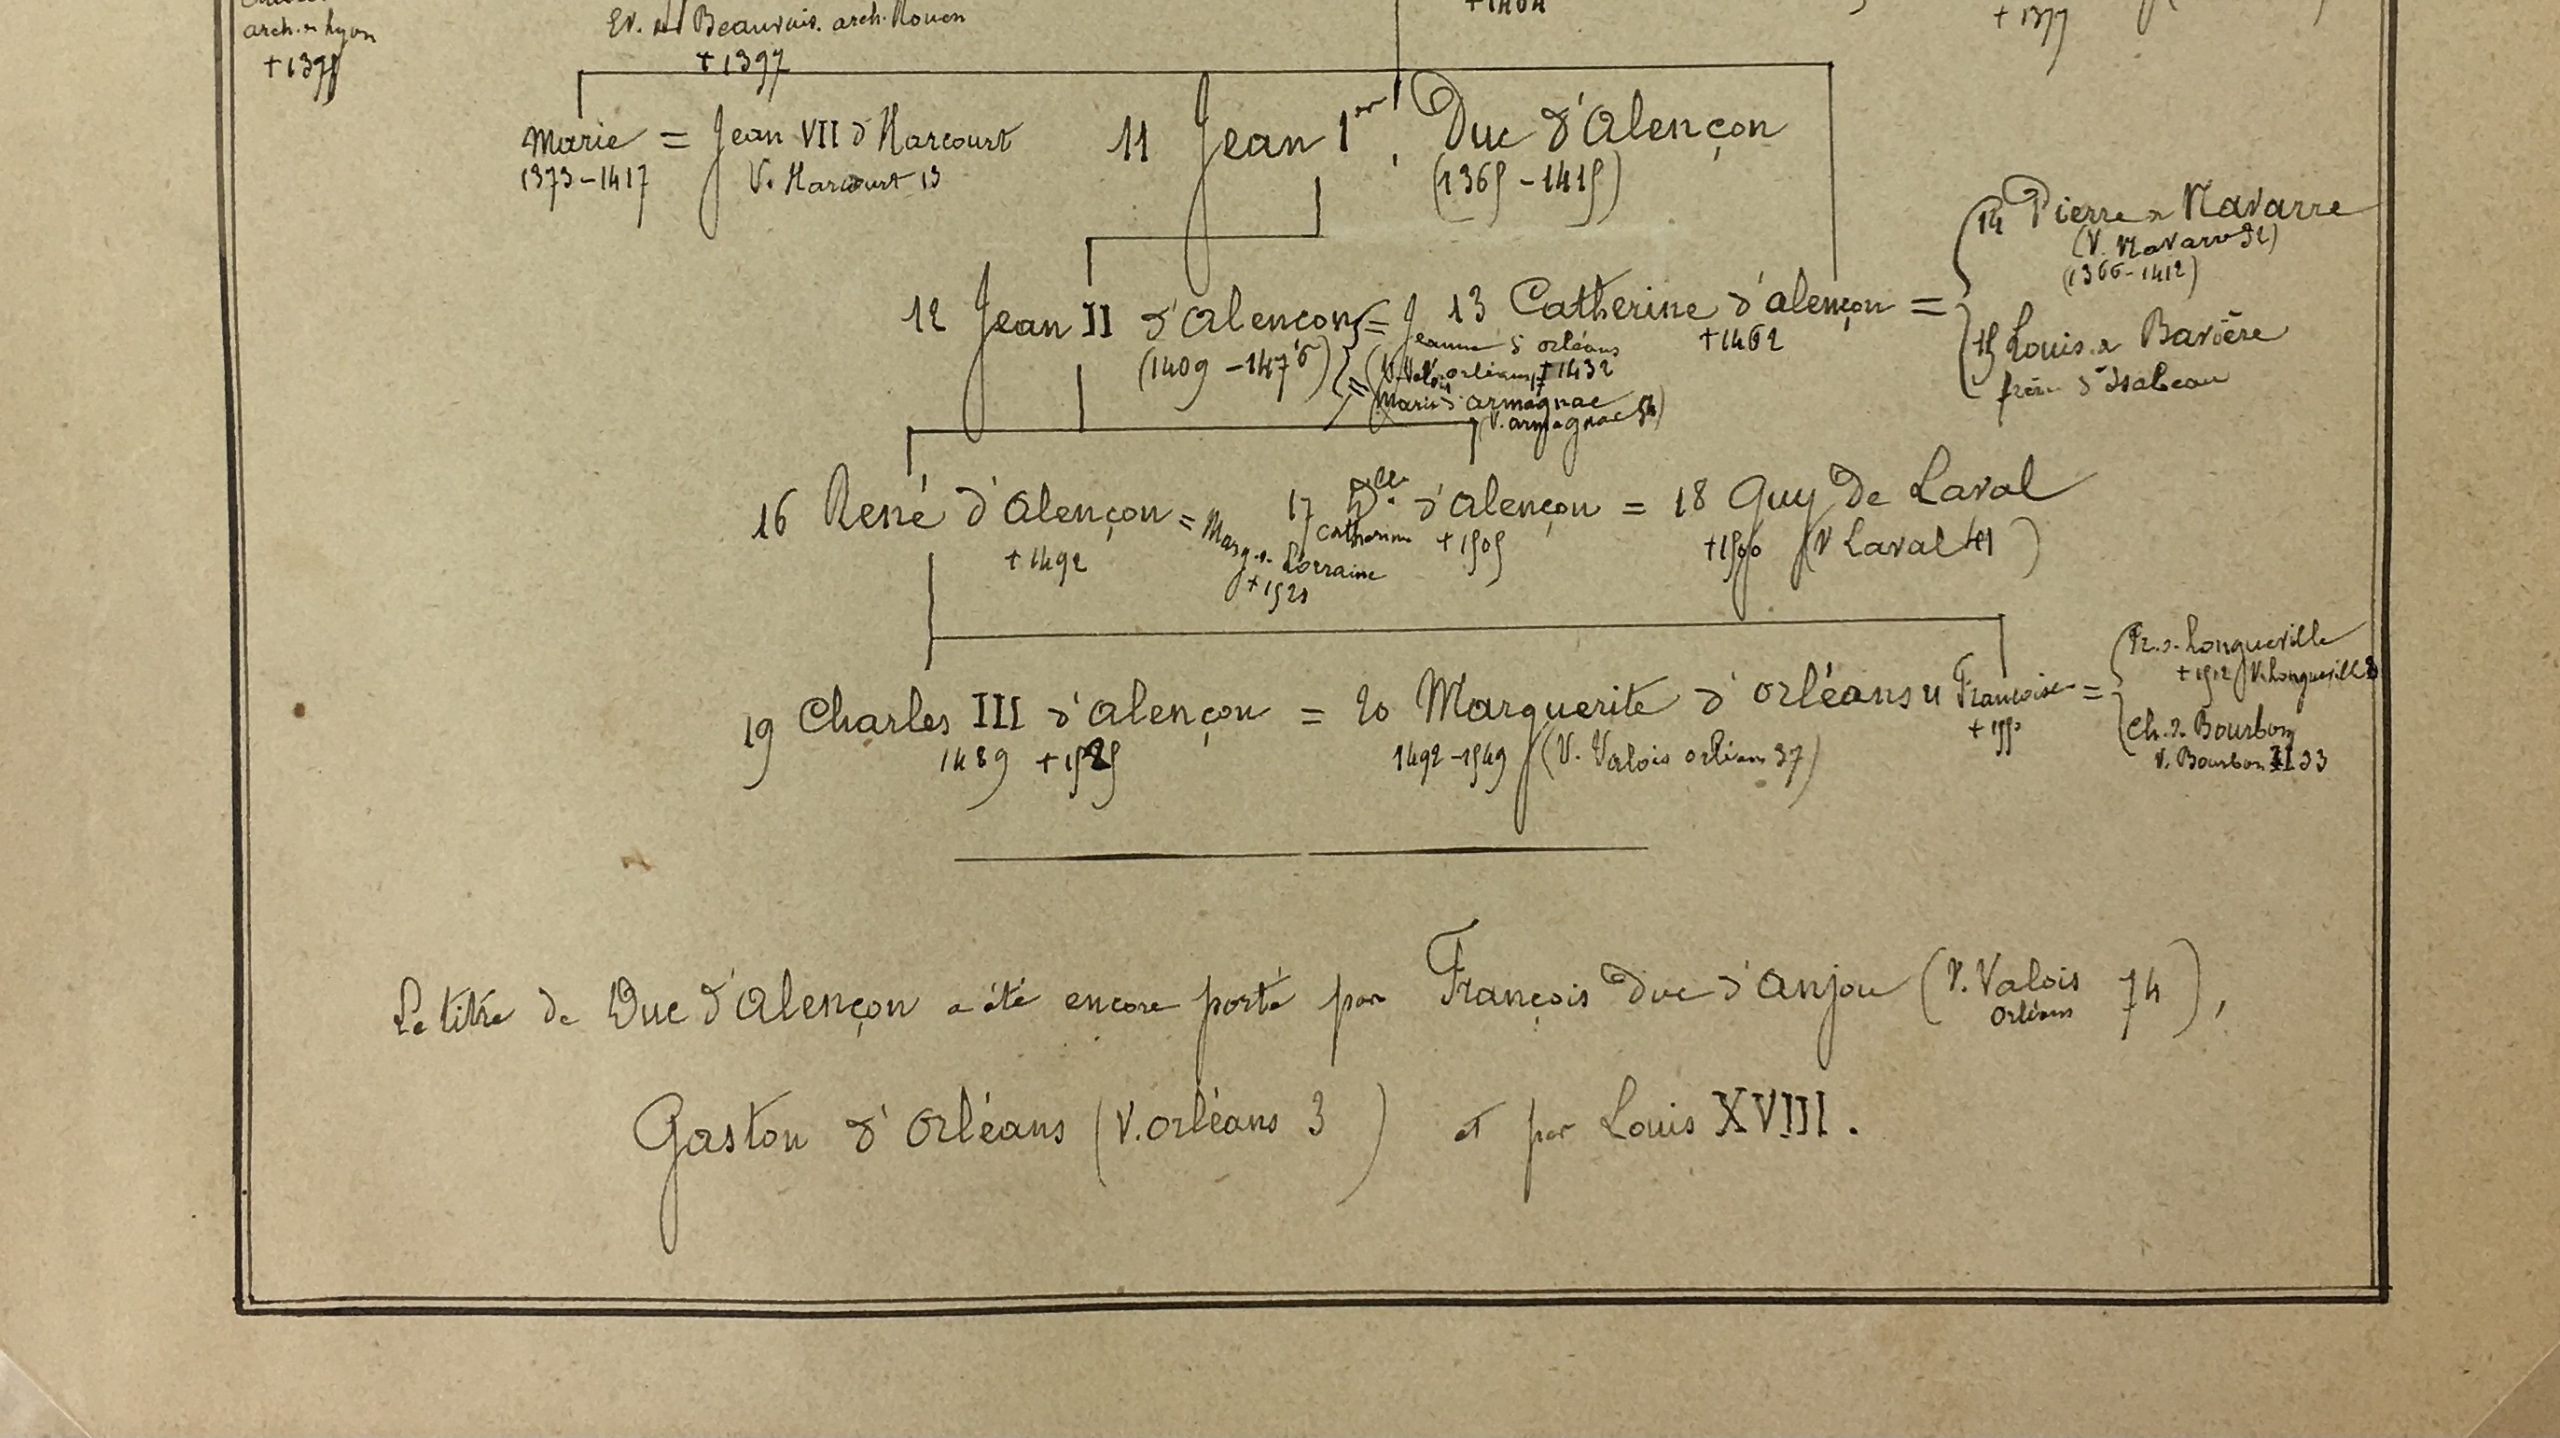 arch. Lyon
Ev. de Beauvais. arch. Rouen
+ 1397
+ 1404
+ 1377
Marie = Jean VII d'Harcourt
1373-1417 V. Harcourt 13
11 Jean 1er, Duc d'Alençon
(1365-1415)
14 Pierre de Navarre
(V. Navarre 32)
(1366-1412)
12 Jean II d'Alençon = Jeanne d'orléans
(1409-1476) (V. Valois orléans 17 +1432
= (Marie d'armagnac
(V. armagnac 54)
13 Catherine d'alençon =
+1462
15 Louis de Bavière
frère d'Isabeau
16 René d'Alençon = Marg. de Lorraine
+ 1492 + 1521
17 Dlle d'Alençon = 18 Guy de Laval
Catherine + 1505 +1500 (V Laval 41)
19 Charles III d'alençon = 20 Marguerite d'orléans 21 Françoise =
1489 +1525 1492-1549 (V. Valois orléans 37) +1550
Fr. d. Longueville
+1512 V. Longueville 8
Ch. d. Bourbon
V. Bourbon II 33
Le titre de Duc d'Alençon a été encore porté par François duc d'Anjou (V. Valois Orléans 74),
Gaston d'Orléans (V. Orléans 3) et par Louis XVIII.